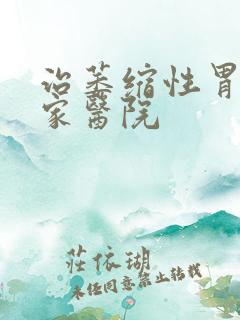 治萎缩性胃
家醫院
莊依瑚
未经同意禁止转载